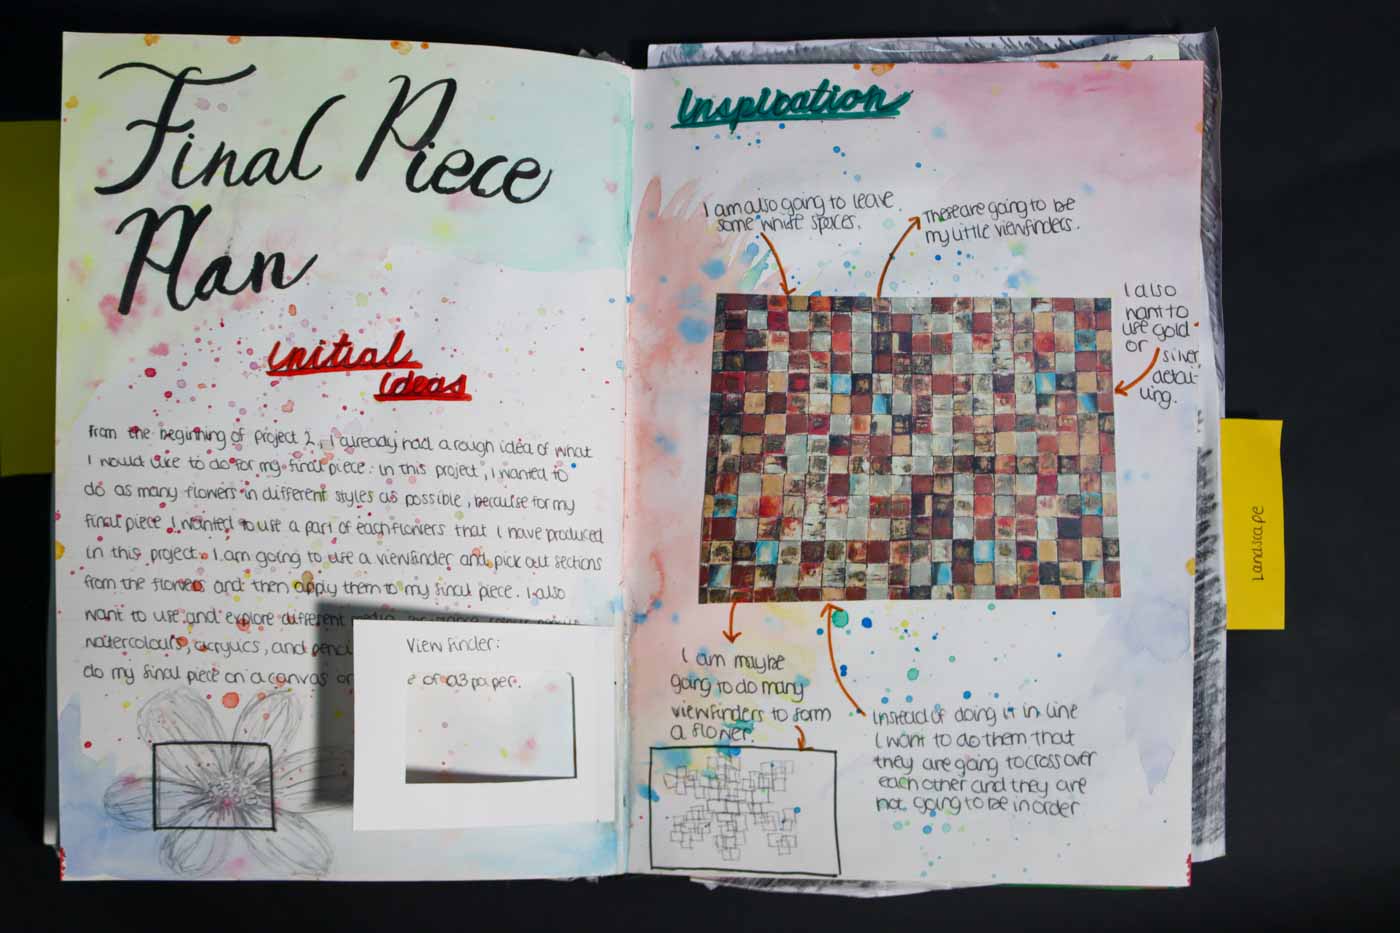 Final Piece
Plan
initial
ideas
From the beginning of project 2, I already had a rough idea of what
I would like to do for my final piece. In this project, I wanted to
do as many flowers in different styles as possible, because for my
final piece I wanted to use a part of each flowers that I have produced
in this project. I am going to use a viewfinder and pick out sections
from the flowers and then apply them to my final piece. I also
want to use and explore different
watercolours, acrylics, and penci
do my final piece on a canvas or
View finder:
e of a3 paper.
Inspiration
I am also going to leave
some white spaces.
These are going to be
my little viewfinders.
I also
want to
use gold
or silver
detai-
ling.
I am maybe
going to do many
viewfinders to form
a flower.
Instead of doing it in line
I want to do them that
they are going to cross over
each other and they are
not going to be in order
Landscape